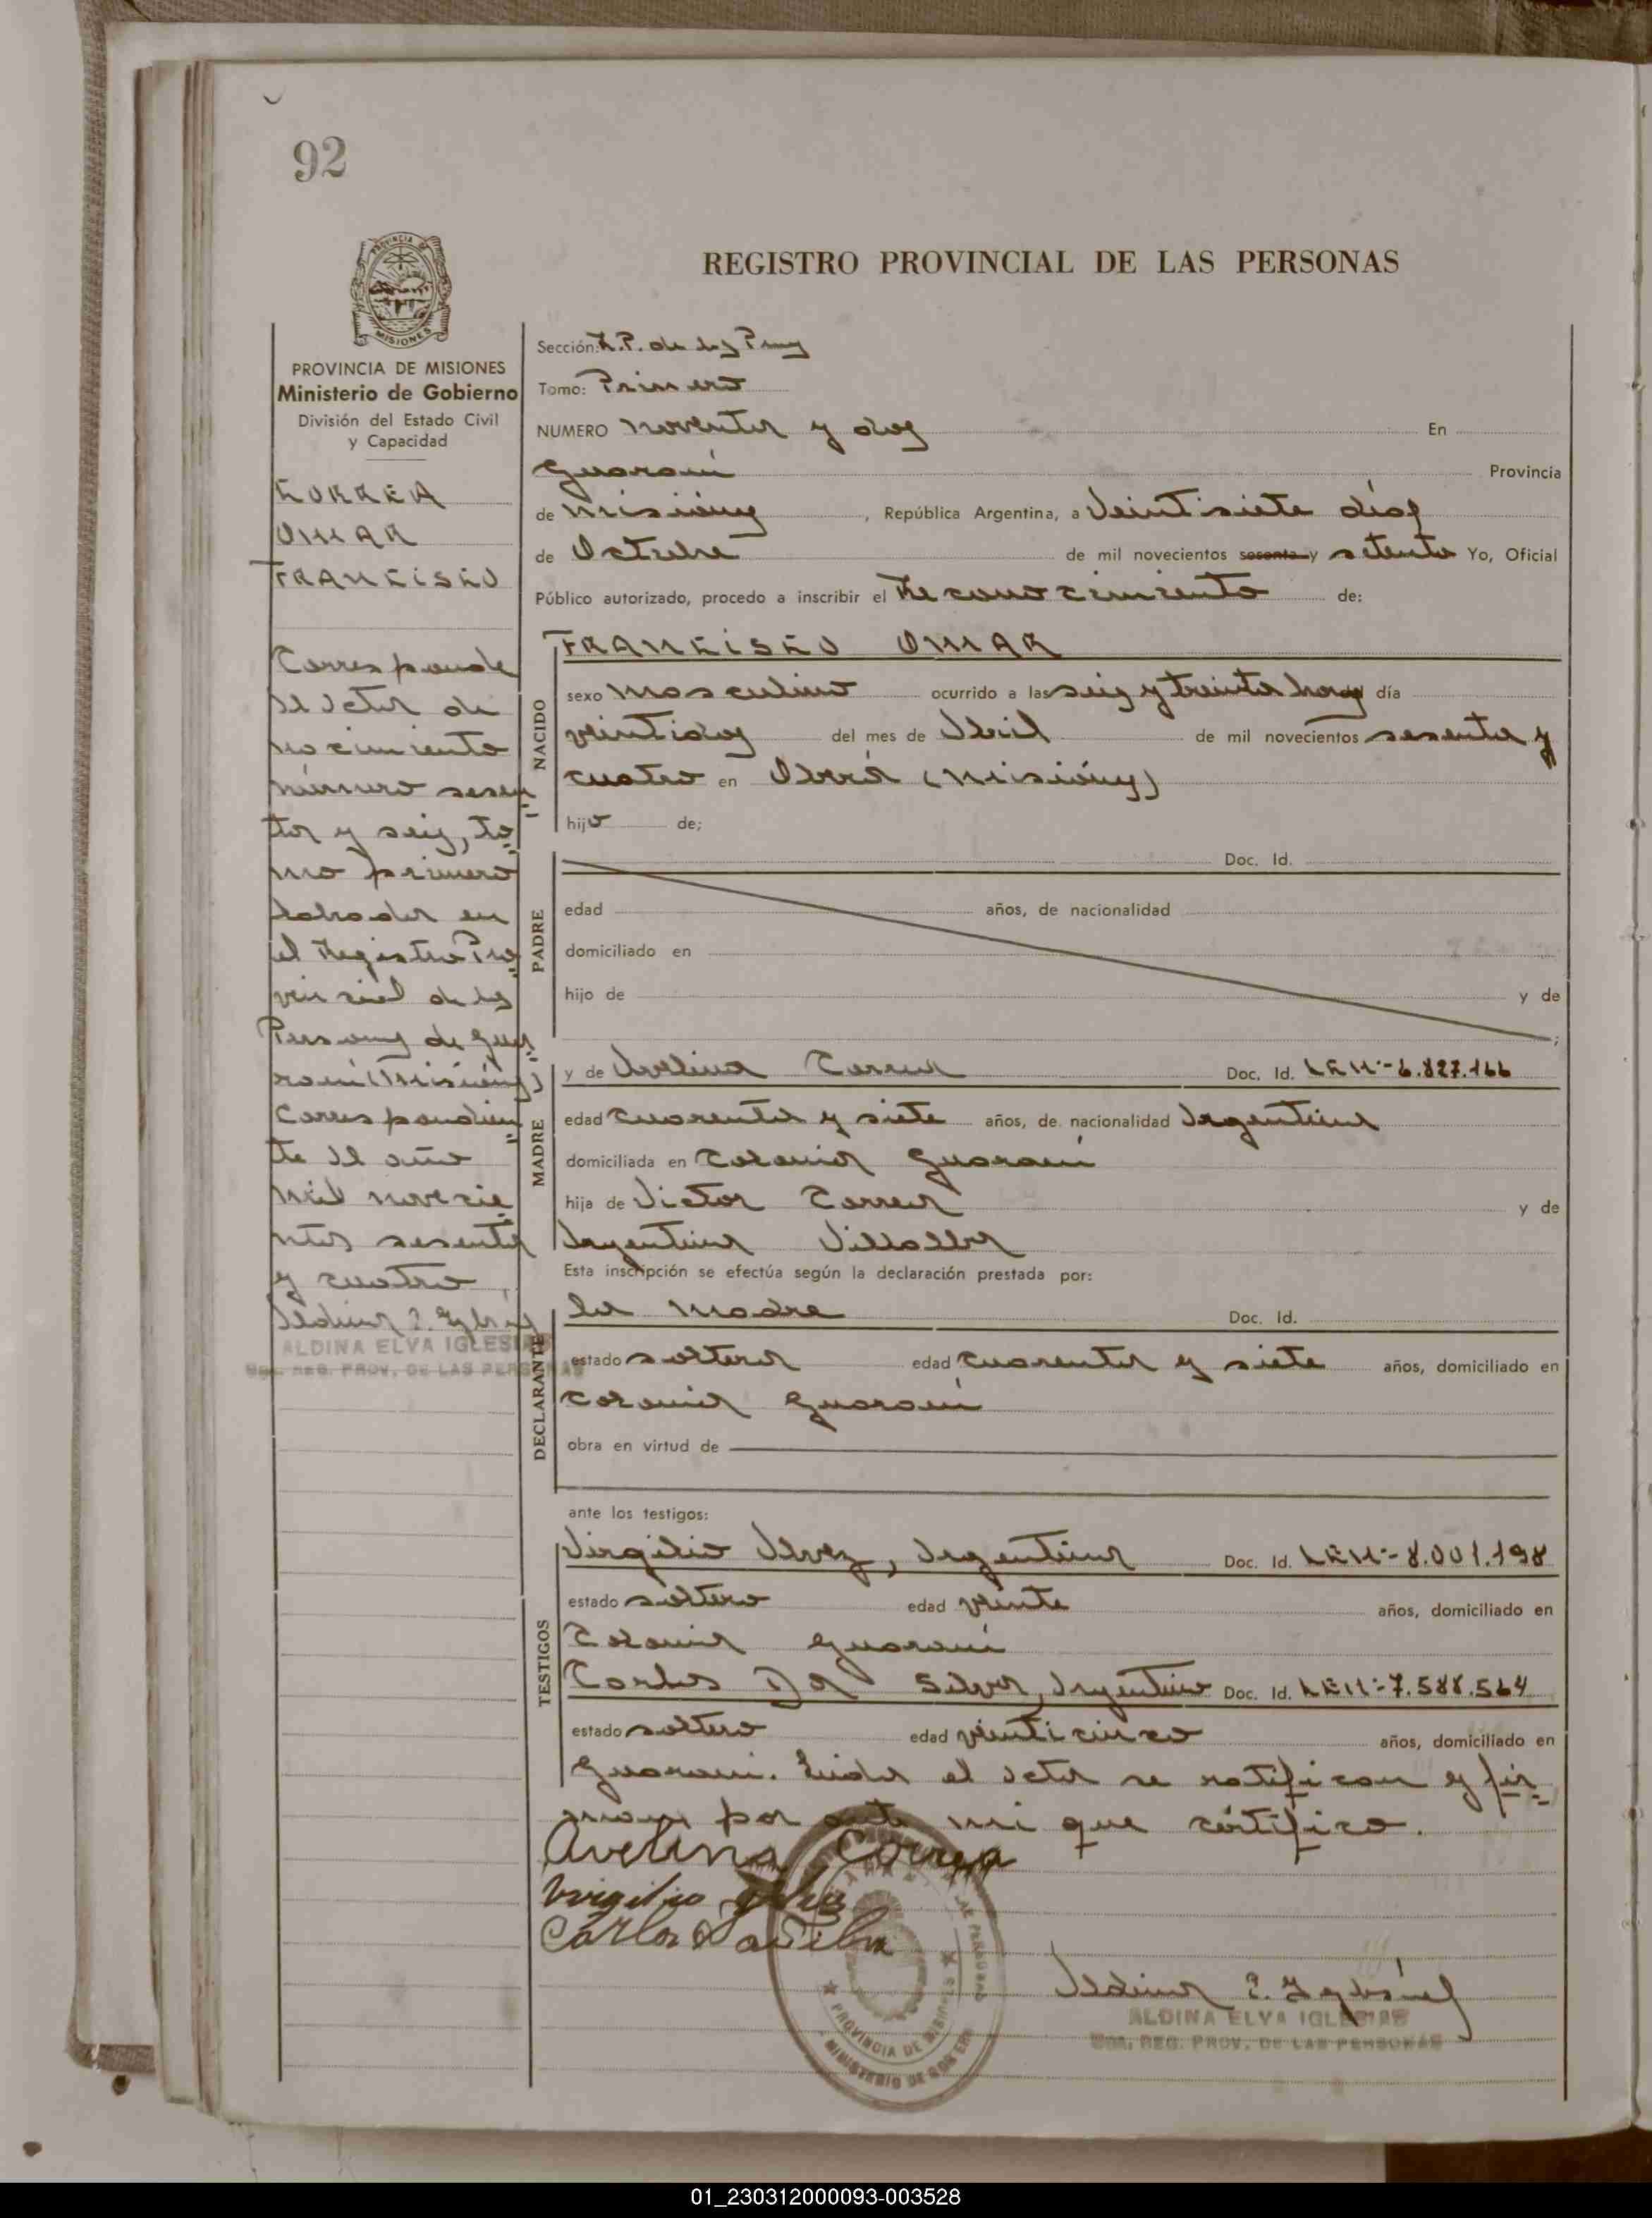 92
REGISTRO PROVINCIAL DE LAS PERSONAS
PROVINCIA DE MISIONES
Ministerio de Gobierno
División del Estado Civil
y Capacidad
CORREA
OMAR
FRANCISCO
Corresponde
al acta de
nacimiento
número sesen
ta y seis, to
mo primero
labrada en
el Registro Pro
vincial de las
Personas de Gua
raní (Misiones)
Correspondien
te al año
mil novecie
ntos sesenta
y cuatro
Aldina E. Iglesias
ALDINA ELVA IGLESIAS
REG. PROV. DE LAS PERSONAS
Sección: R.P. de las Pnas
Tomo: Primero
NUMERO noventa y dos En
Guaraní Provincia
de Misiones, República Argentina, a Veintisiete días
de Octubre de mil novecientos sesenta y setenta Yo, Oficial
Público autorizado, procedo a inscribir el Reconocimiento de:
FRANCISCO OMAR
NACIDO
sexo masculino ocurrido a las seis y treinta horas día
veintidos del mes de Abril de mil novecientos sesenta y
cuatro en Oberá (Misiones)
hijo de;
PADRE
Doc. Id.
edad años, de nacionalidad
domiciliado en
hijo de y de
;
MADRE
y de Avelina Correa Doc. Id. L.C.Nº- 6.827.166
edad cuarenta y siete años, de nacionalidad Argentina
domiciliada en Colonia Guaraní
hija de Victor Correa y de
Argentina Villalba
Esta inscripción se efectúa según la declaración prestada por:
DECLARANTE
la madre Doc. Id.
estado soltera edad cuarenta y siete años, domiciliado en
Colonia Guaraní
obra en virtud de
ante los testigos:
TESTIGOS
Virgilio Alvez, Argentina Doc. Id. L.E.Nº- 8.001.198
estado soltero edad veinte años, domiciliado en
Colonia Guaraní
Carlos Da Silva, Argentino Doc. Id. L.E.Nº- 7.588.564
estado soltero edad veinticinco años, domiciliado en
Guaraní. Leida el acta se ratifican y fir
man por ante mi que certifico.
Avelina Correa
Virgilio Alvez
Carlos Da Silva
PROVINCIA DE MISIONES
MINISTERIO DE GOBIERNO
Aldina E. Iglesias
ALDINA ELVA IGLESIAS
REG. PROV. DE LAS PERSONAS
01_230312000093-003528